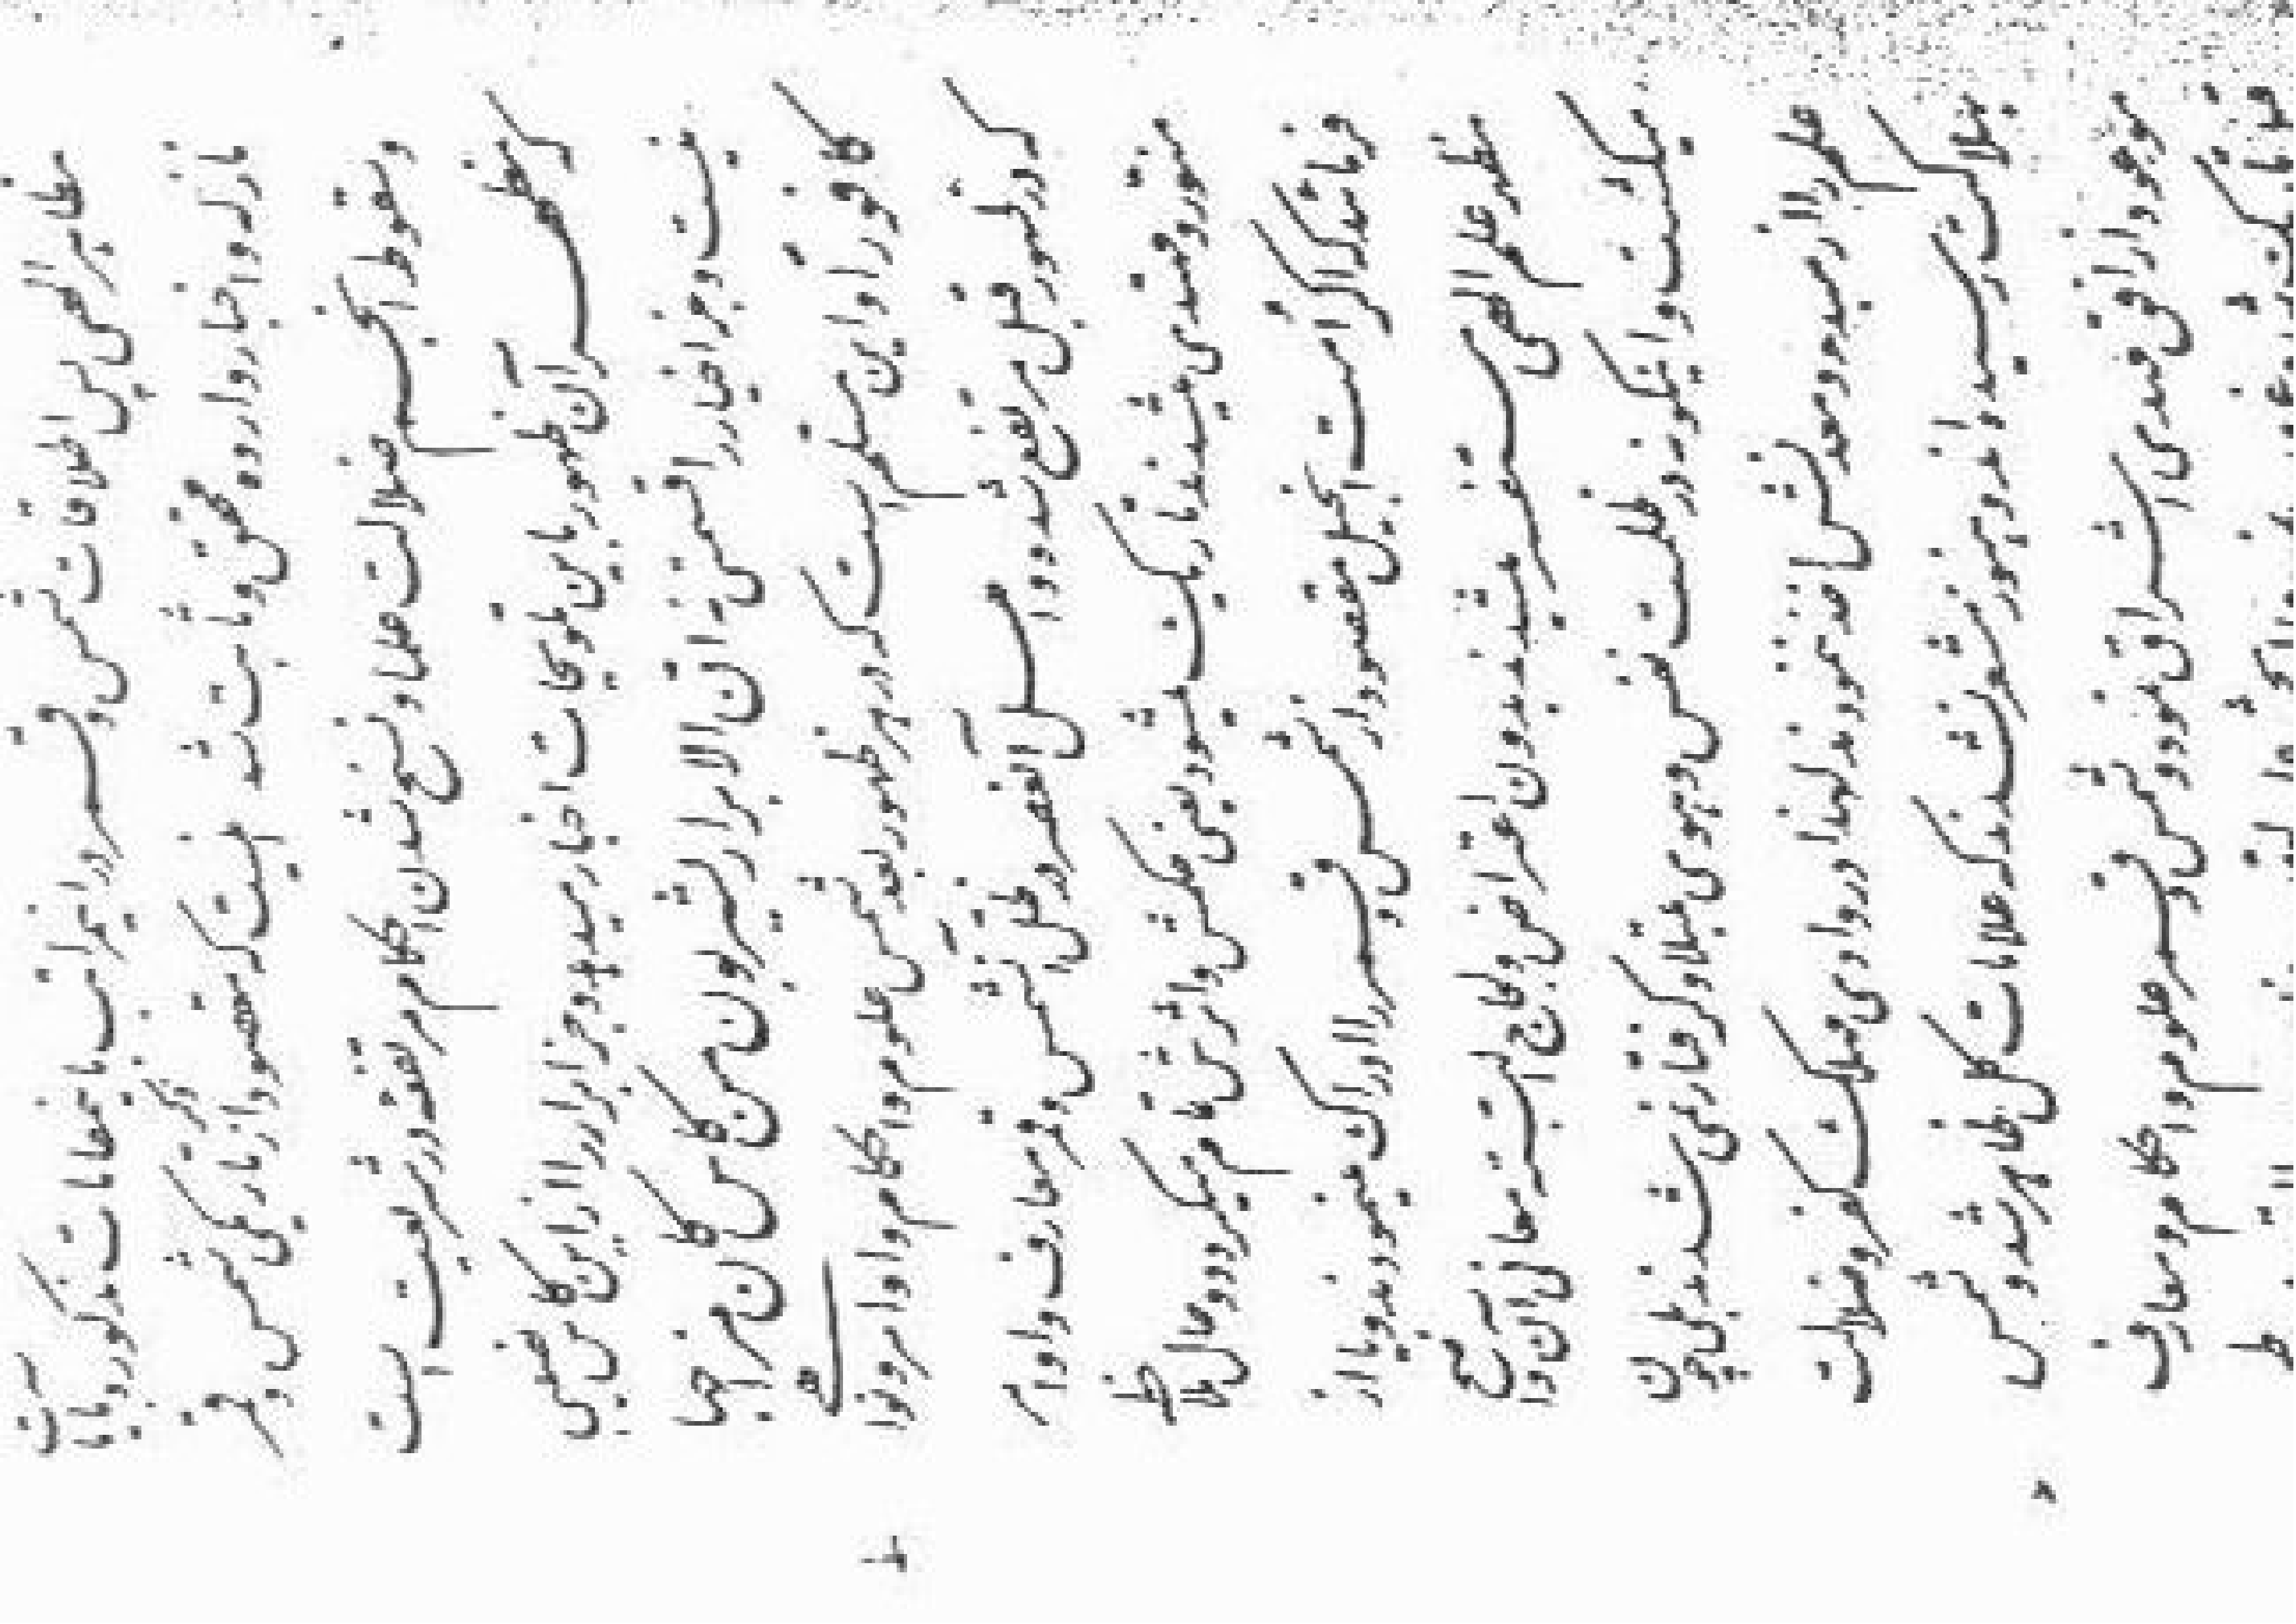 مظاهر الهی پس اطلاقات شمس و قمر در این مراتب باین مقامات مذکوره بآیات
نازله و اخبار وارده محقق و ثابت شد اینست که مقصود از ذکر تاریکی شمس و قمر
و سقوط انجم ضلالت علما و نسخ شدن احکام مرتفعه در شریعت است
که مظهر آن ظهور باین تلویحات اخبار میدهد و جز ابرار را از این کاس نصیبی
نیست و جز اخیار را قسمتی نه ان الابرار یشربون من کاس کان مزاجها
کافورا و این مسلم است که در هر ظهور بعد شمس علوم و احکام و اوامر و نواهی
که در ظهور قبل مرتفع شده و اهل آن عصر در ظل آن شمس و قمر معارف و اوامر
منور و مهتدی میشدند تاریک میشود یعنی حکمش و اثرش تمام میگردد و حال ملاحظه
فرمائید که اگر امت انجیل مقصود از شمس و قمر را ادراک مینمودند و یا از
مظهر علم الهی مستفسر میشدند بدون اعتراض و لجاج البته معانی آن واضح
میگشت و اینگونه در ظلمت نفس و هوی مبتلا و گرفتار نمیشدند بلی چون
علم را از مبدء و معدنش اخذ ننمودند لهذا در وادی مهلک کفر و ضلالت
بهلاکت رسیدند و هنوز مشعر نشدند که علامات کل ظاهر شد و شمس
موعود از افق مهدی اشراق نمود و شمس و قمر علوم و احکام و معارف